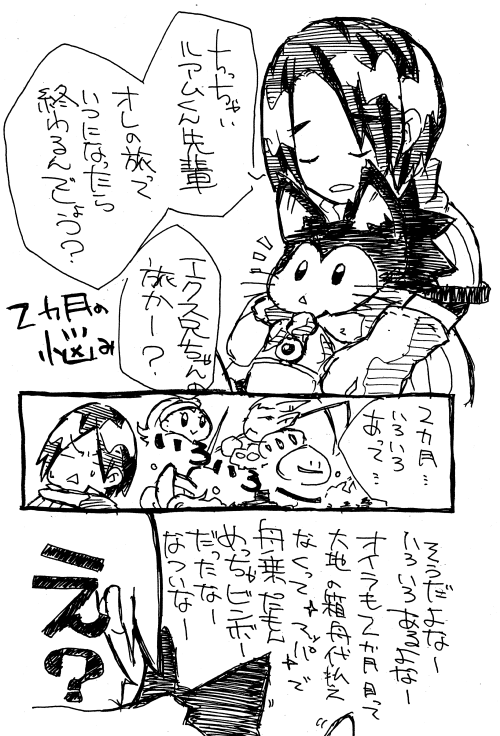 ちっちゃい
ルアムくん先輩
オレの旅って
いつになったら
終わるんでしょう?
エクス兄ちゃんの
旅かー?
2ヵ月の
悩み
2ヵ月…
いろいろ
あって…
そうだよなー
いろいろあるよなー
オイラも2ヵ月って
大地の箱舟代払え
なくって マッパで
舟乗ったもん
めっちゃビンボー
だったなー
なついなー